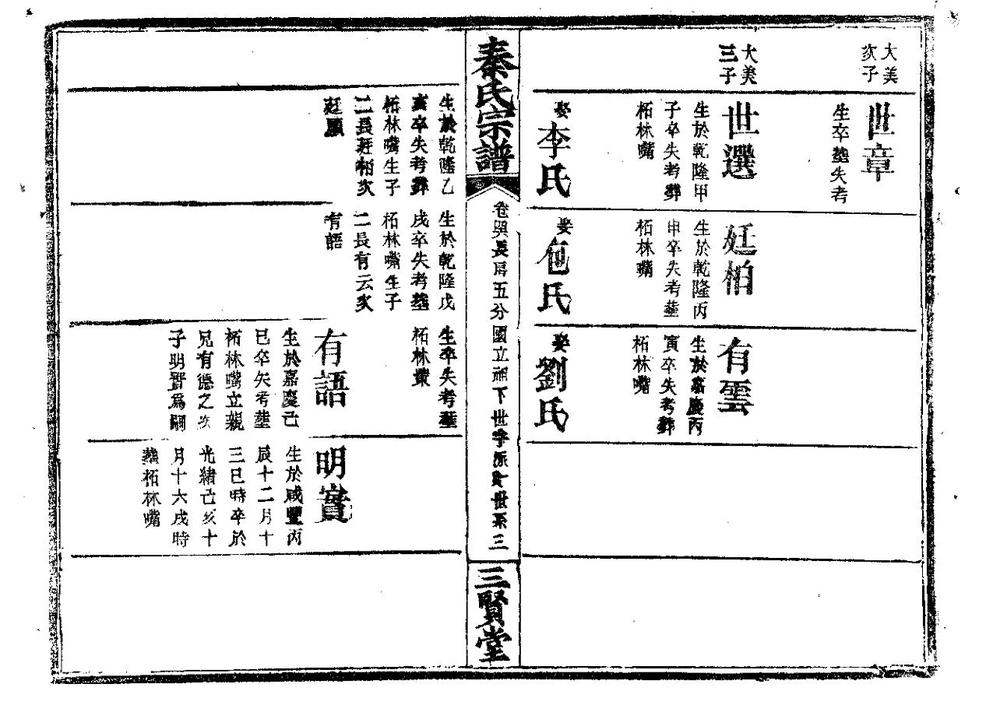 大美
次子
世章
生卒塟失考
大美
三子
世選
生於乾隆甲
子卒失考葬
柘林嘴
娶李氏
廷柏
生於乾隆丙
申卒失考塟
柘林嘴
娶包氏
有雲
生於嘉慶丙
寅卒失考葬
柘林嘴
娶劉氏
秦氏宗譜
長房五分國立祖下世
世系三
三賢堂
生於乾隆乙
亥卒失考葬
柘林嘴生子
二長廷柏次
廷顯
生於乾隆戊
戌卒失考塟
柘林嘴生子
二長有云次
有語
生卒失考塟
柘林
有語
生於嘉慶己
巳卒失考塟
柘林嘴立親
兄有德之次
子明實爲嗣
明實
生於咸豐丙
辰十二月十
三巳時卒於
光緒己亥十
月十六戌時
葬柘林嘴